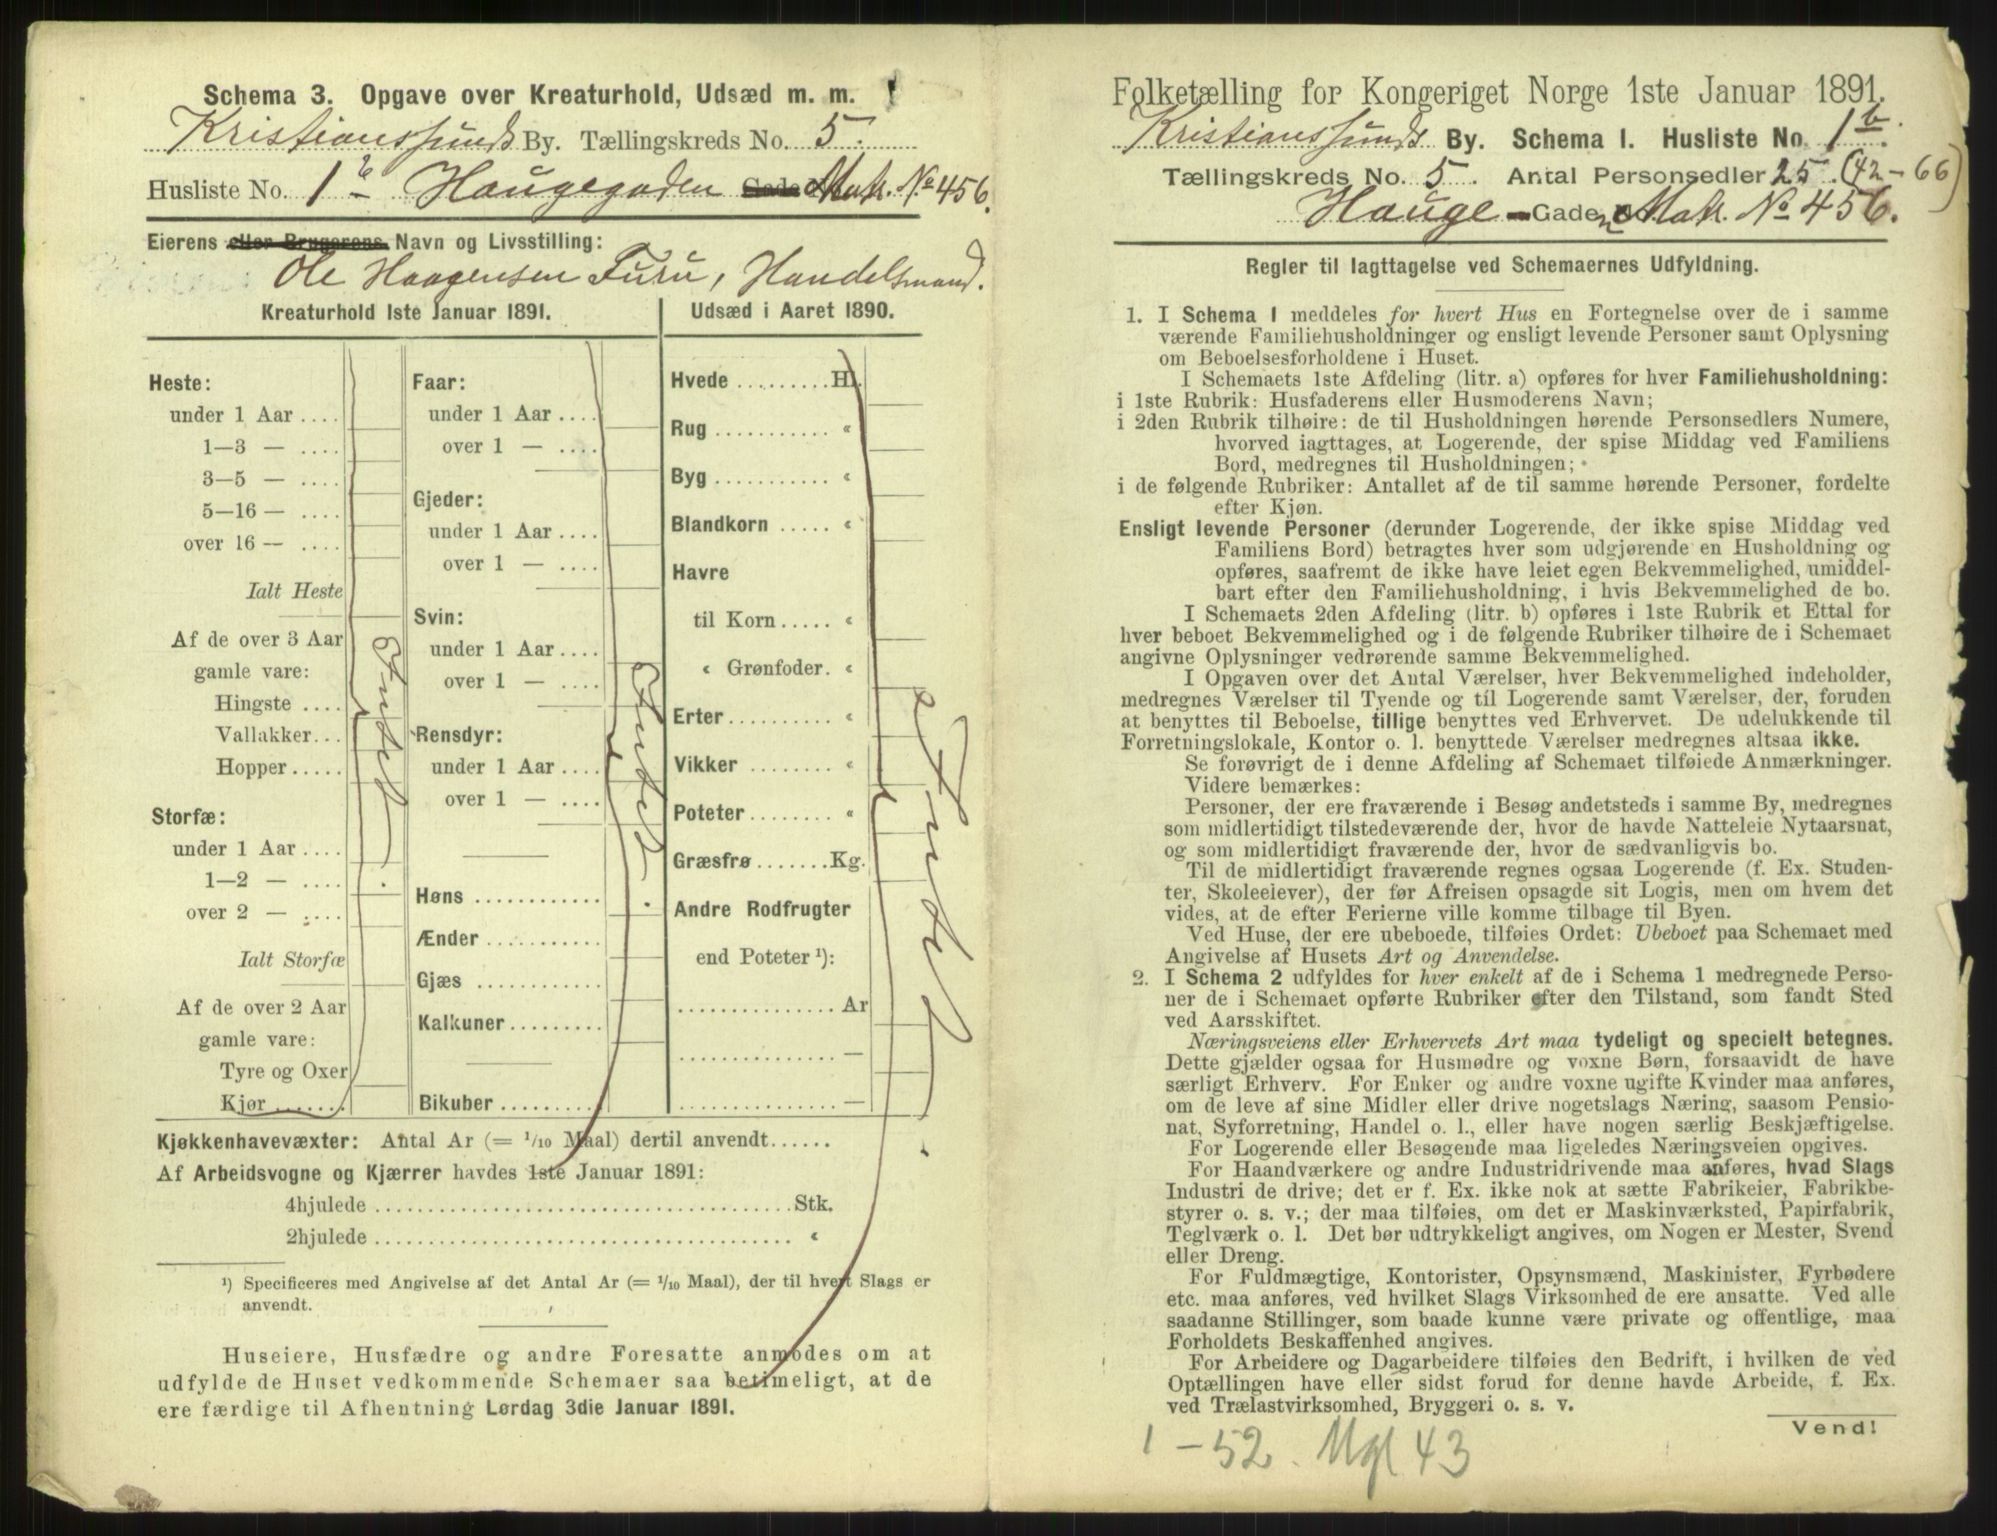 Schema 3. Opgave over Kreaturhold, Udsæd m. m.
Kristianssunds By. Tællingskreds No. 5.
Husliste No. 1 b Haugegaden Gade Matr. No 456.
Eierens eller Brugerens Navn og Livsstilling:
Ole Haagensen Furu, Handelsmand.
Kreaturhold 1ste Januar 1891.
Heste:
under 1 Aar ....
1—3 — ....
3—5 — ....
5—16 — ....
over 16 — ....
Ialt Heste
Af de over 3 Aar
gamle vare:
Hingste ....
Vallakker...
Hopper.....
Storfæ:
under 1 Aar ....
1—2 — ....
over 2 — ....
Ialt Storfæ
Af de over 2 Aar
gamle vare:
Tyre og Oxer
Kjør.......
Intet.
Faar:
under 1 Aar ....
over 1 — ....
Gjeder:
under 1 Aar ....
over 1 — ....
Svin:
under 1 Aar ....
over 1 — ....
Rensdyr:
under 1 Aar ....
over 1 — ....
Høns ............
Ænder...........
Gjæs ............
Kalkuner.........
Bikuber..........
Intet.
Udsæd i Aaret 1890.
Hvede .........Hl.
Rug ........... «
Byg ........... «
Blandkorn ..... «
Havre
til Korn ..... «
« Grønfoder. «
Erter.......... «
Vikker ........ «
Poteter........ «
Græsfrø .......Kg.
Andre Rodfrugter
end Poteter ¹):
............... Ar
............... —
............... —
Intet.
Kjøkkenhavevæxter: Antal Ar (= 1/10 Maal) dertil anvendt......
Af Arbeidsvogne og Kjærrer havdes 1ste Januar 1891:
4hjulede ....................................Stk.
2hjulede .................................... «
¹) Specificeres med Angivelse af det Antal Ar (= 1/10 Maal), der til hvert Slags er
anvendt.
Huseiere, Husfædre og andre Foresatte anmodes om at
udfylde de Huset vedkommende Schemaer saa betimeligt, at de
ere færdige til Afhentning Lørdag 3die Januar 1891.
Folketælling for Kongeriget Norge 1ste Januar 1891.
Kristianssunds By. Schema I. Husliste No. 1 b.
Tællingskreds No. 5. Antal Personsedler 25 (42-66)
Hauge-Gaden Matr. No 456.
Regler til Iagttagelse ved Schemaernes Udfyldning.
1. I Schema I meddeles for hvert Hus en Fortegnelse over de i samme
værende Familiehusholdninger og ensligt levende Personer samt Oplysning
om Beboelsesforholdene i Huset.
I Schemaets 1ste Afdeling (litr. a) opføres for hver Familiehusholdning:
i 1ste Rubrik: Husfaderens eller Husmoderens Navn;
i 2den Rubrik tilhøire: de til Husholdningen hørende Personsedlers Numere,
hvorved iagttages, at Logerende, der spise Middag ved Familiens
Bord, medregnes til Husholdningen;
i de følgende Rubriker: Antallet af de til samme hørende Personer, fordelte
efter Kjøn.
Ensligt levende Personer (derunder Logerende, der ikke spise Middag ved
Familiens Bord) betragtes hver som udgjørende en Husholdning og
opføres, saafremt de ikke have leiet egen Bekvemmelighed, umiddel-
bart efter den Familiehusholdning, i hvis Bekvemmelighed de bo.
I Schemaets 2den Afdeling (litr. b) opføres i 1ste Rubrik et Ettal for
hver beboet Bekvemmelighed og i de følgende Rubriker tilhøire de i Schemaet
angivne Oplysninger vedrørende samme Bekvemmelighed.
I Opgaven over det Antal Værelser, hver Bekvemmelighed indeholder,
medregnes Værelser til Tyende og til Logerende samt Værelser, der, foruden
at benyttes til Beboelse, tillige benyttes ved Erhvervet. De udelukkende til
Forretningslokale, Kontor o. l. benyttede Værelser medregnes altsaa ikke.
Se forøvrigt de i denne Afdeling af Schemaet tilføiede Anmærkninger.
Videre bemærkes:
Personer, der ere fraværende i Besøg andetsteds i samme By, medregnes
som midlertidigt tilstedeværende der, hvor de havde Natteleie Nytaarsnat,
og som midlertidigt fraværende der, hvor de sædvanligvis bo.
Til de midlertidigt fraværende regnes ogsaa Logerende (f. Ex. Studen-
ter, Skoleelever), der før Afreisen opsagde sit Logis, men om hvem det
vides, at de efter Ferierne ville komme tilbage til Byen.
Ved Huse, der ere ubeboede, tilføies Ordet: Ubeboet paa Schemaet med
Angivelse af Husets Art og Anvendelse.
2. I Schema 2 udfyldes for hver enkelt af de i Schema 1 medregnede Perso-
ner de i Schemaet opførte Rubriker efter den Tilstand, som fandt Sted
ved Aarsskiftet.
Næringsveiens eller Erhvervets Art maa tydeligt og specielt betegnes.
Dette gjælder ogsaa for Husmødre og voxne Børn, forsaavidt de have
særligt Erhverv. For Enker og andre voxne ugifte Kvinder maa anføres,
om de leve af sine Midler eller drive nogetslags Næring, saasom Pensio-
nat, Syforretning, Handel o. l., eller have nogen særlig Beskjæftigelse.
For Logerende eller Besøgende maa ligeledes Næringsveien opgives.
For Haandværkere og andre Industridrivende maa anføres, hvad Slags
Industri de drive; det er f. Ex. ikke nok at sætte Fabrikeier, Fabrikbe-
styrer o. s. v.; der maa tilføies, om det er Maskinværksted, Papirfabrik,
Teglværk o. l. Det bør udtrykkeligt angives, om Nogen er Mester, Svend
eller Dreng.
For Fuldmægtige, Kontorister, Opsynsmænd, Maskinister, Fyrbødere
etc. maa anføres, ved hvilket Slags Virksomhed de ere ansatte. Ved alle
saadanne Stillinger, som baade kunne være private og offentlige, maa
Forholdets Beskaffenhed angives.
For Arbeidere og Dagarbeidere tilføies den Bedrift, i hvilken de ved
Optællingen have eller sidst forud for denne havde Arbeide, f. Ex.
ved Trælastvirksomhed, Bryggeri o. s. v.
Vend!
1-52. Mgl 43